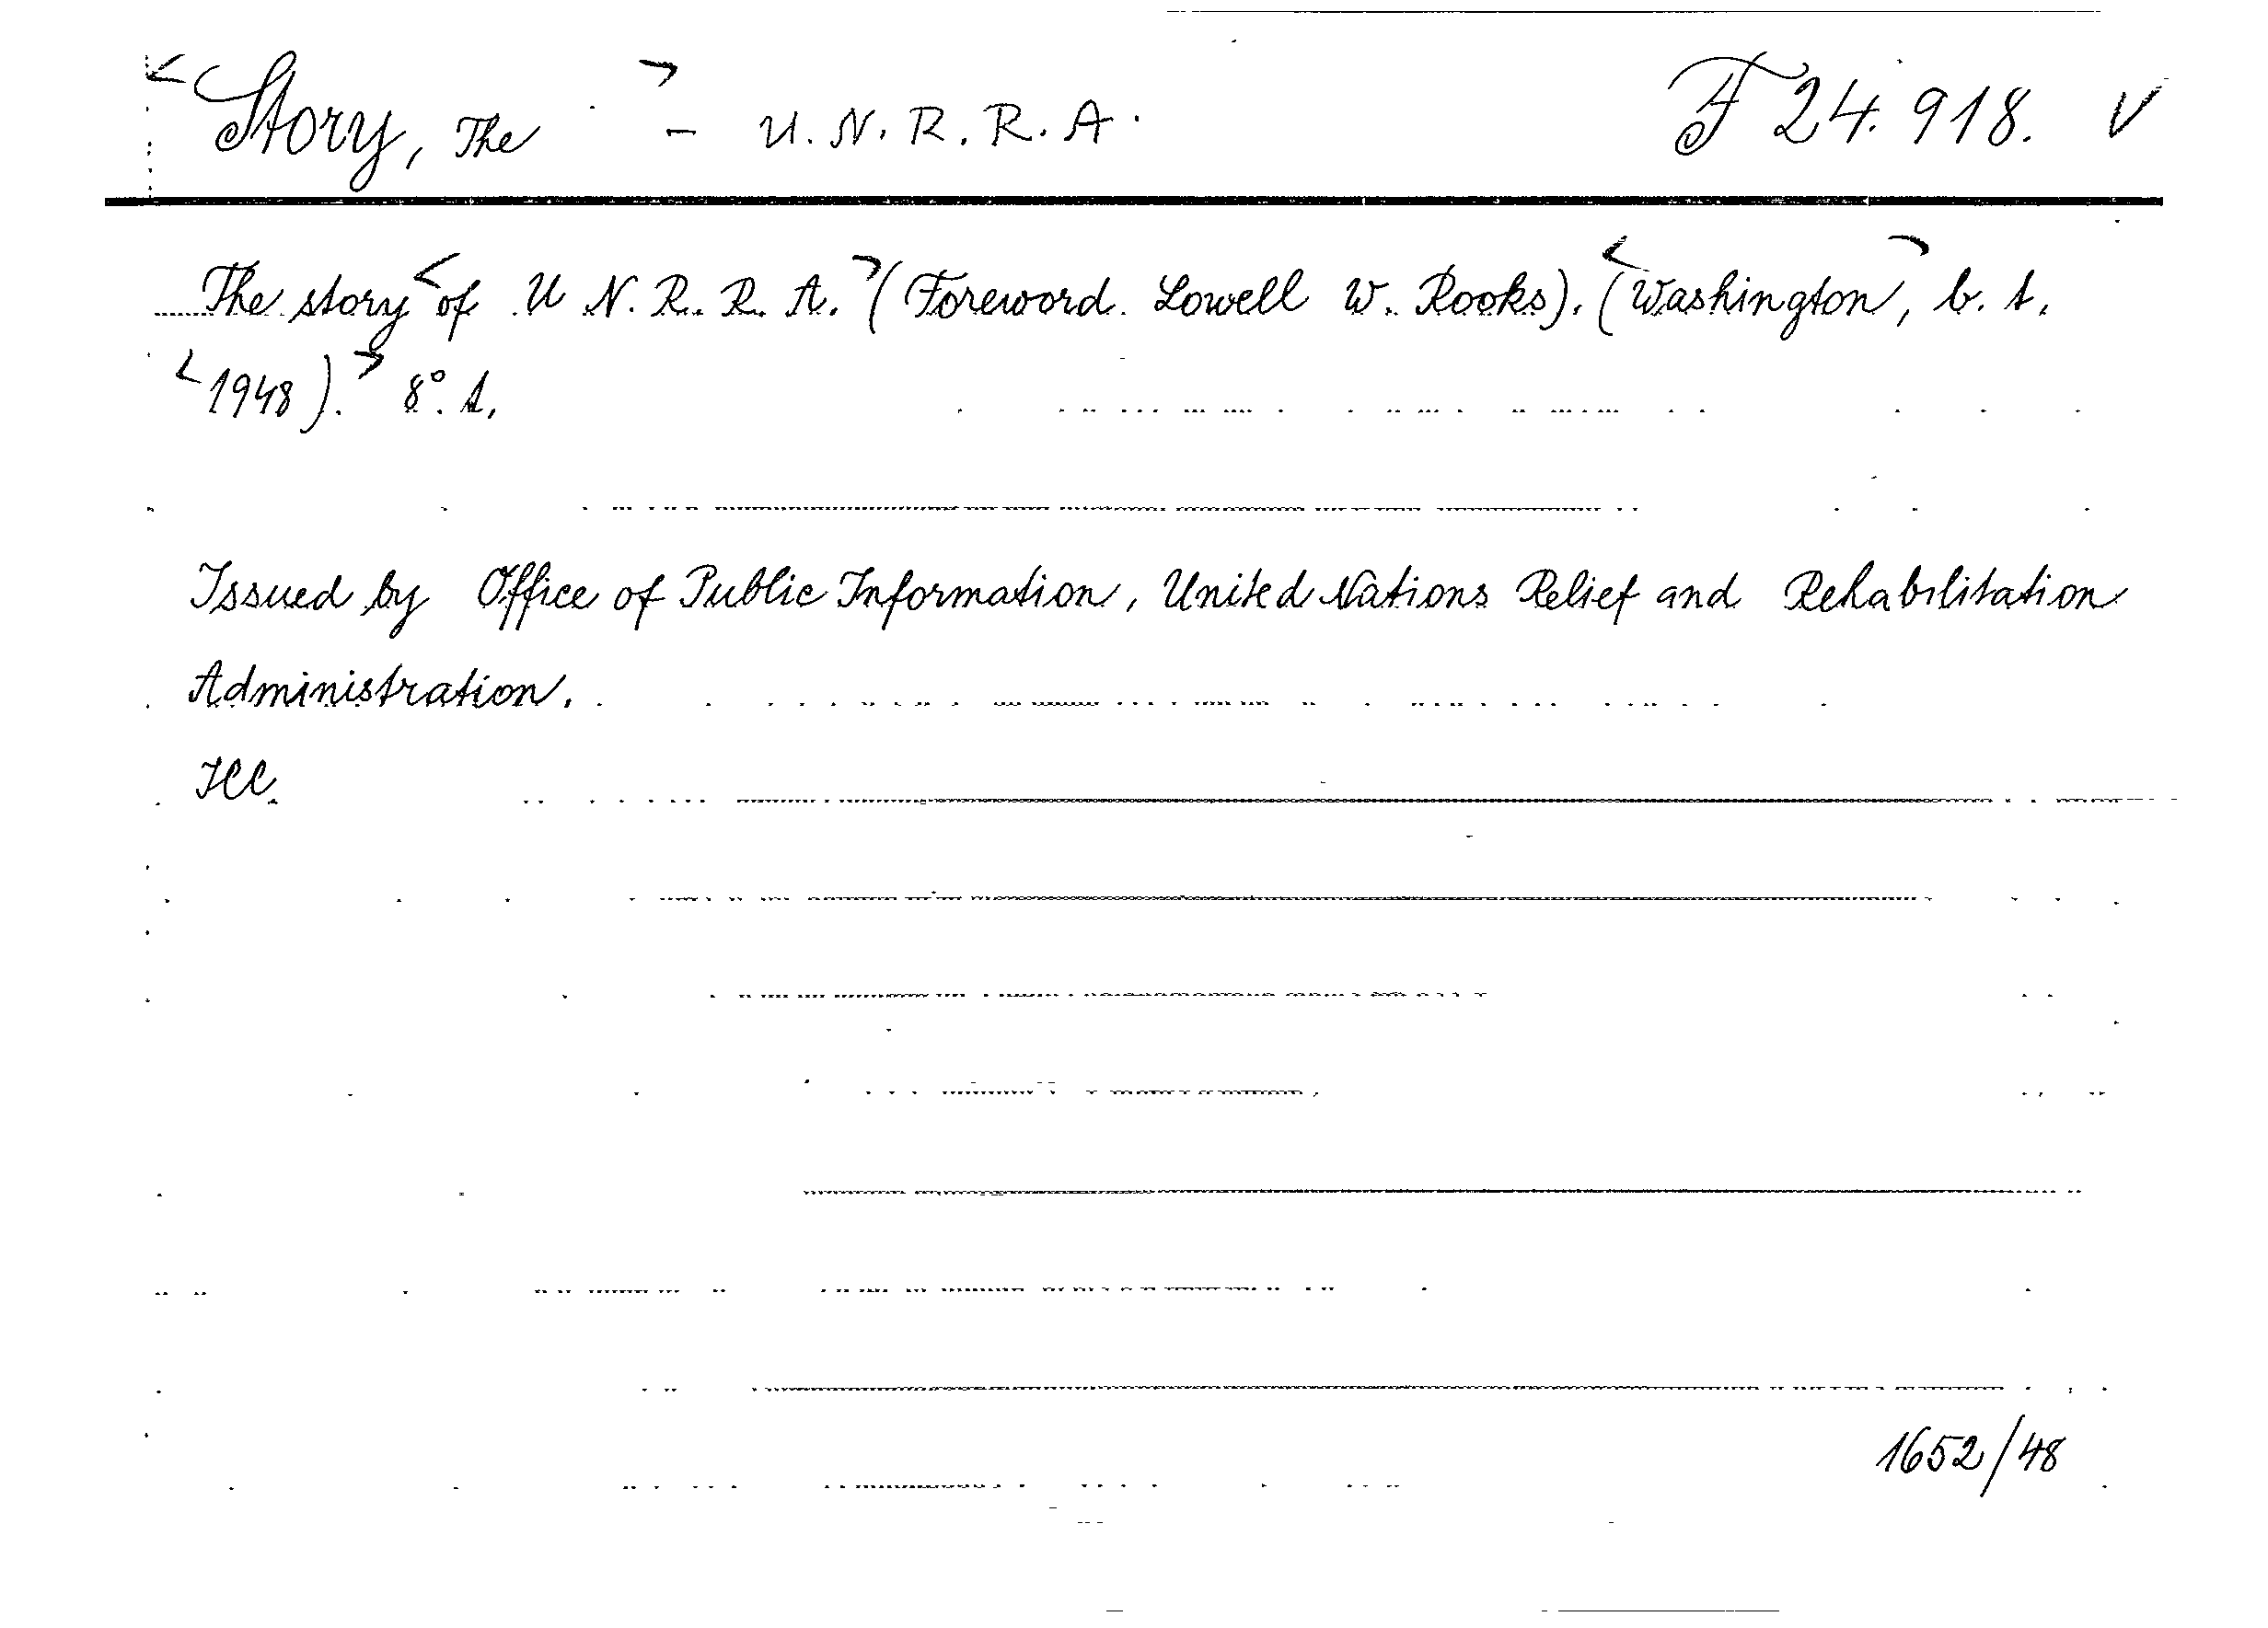 <Story, The > - U.N.R.R.A. F 24.918. V
The story <of U N. R. R. A.> (Foreword Lowell W. Rooks). <(Washington>, b. t.
<1948).> 8°. t.
Issued by Office of Public Information, United Nations Relief and Rehabilitation
Administration.
Ill.
1652/48